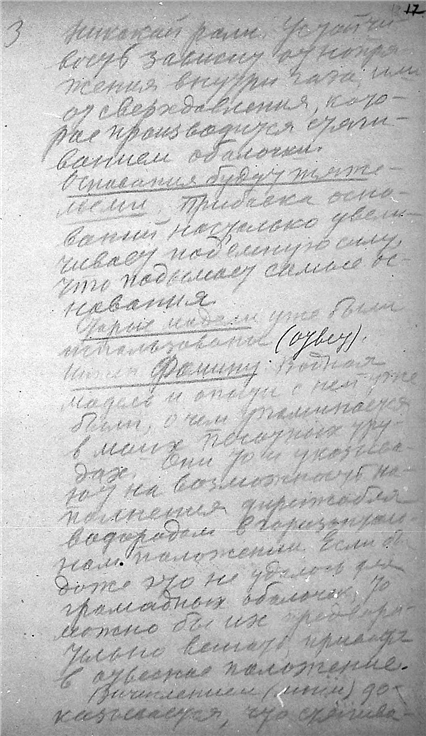 3
17
никакой роли. Устойчи-
вость зависит от напря-
жения внутри газа или
от сверхдавления, кото-
рое производится стяги-
ванием оболочки.
Основания будут тяже-
лыми. Прибавка осно-
ваний настолько увели-
чивает подъемную силу,
что подымает самые ос-
нования.
модели уже были
использованы (ответ).
Фомину. Водная
модель и опыты с ней уже
были, о чем упоминается
в моих печатных тру-
дах. Они то и указыва-
ют на возможность на-
полнения дирижабля
водородом в горизонталь-
ном положении. Если бы
даже это не удалось для
громадных оболочек, то
можно бы их предвари-
тельно
в отвесное положение.
Вычислением (моим) до-
казывается, что стягива-